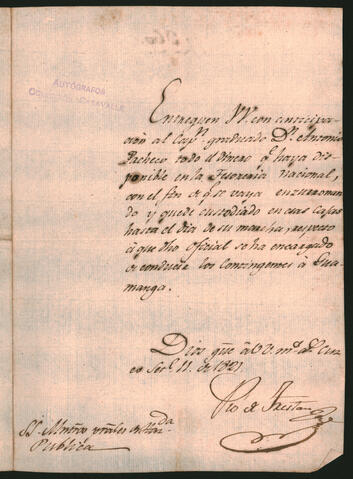 AUTÓGRAFOS
Entreguen VV. con anticipa
cion al Cap.ⁿ graduado Dⁿ. Antonio
Pacheco todo el dinero q.ᵉ haya dis
ponible en la Tesoreria Nacional,
con el fin de q.ᵉ se vaya enzurronan
do y quede custodiado en esas Cajas
hasta el dia de su marcha, respecto
á que dho oficial se ha encargado
de conducir los Contingentes á Gua
manga.
Dios gũe á VV m.ˢ a.ˢ Cuz
co 11. de 1821
Pio de Tristan
SS. Mrños grâles de Haz.ᵈᵃ
Publica